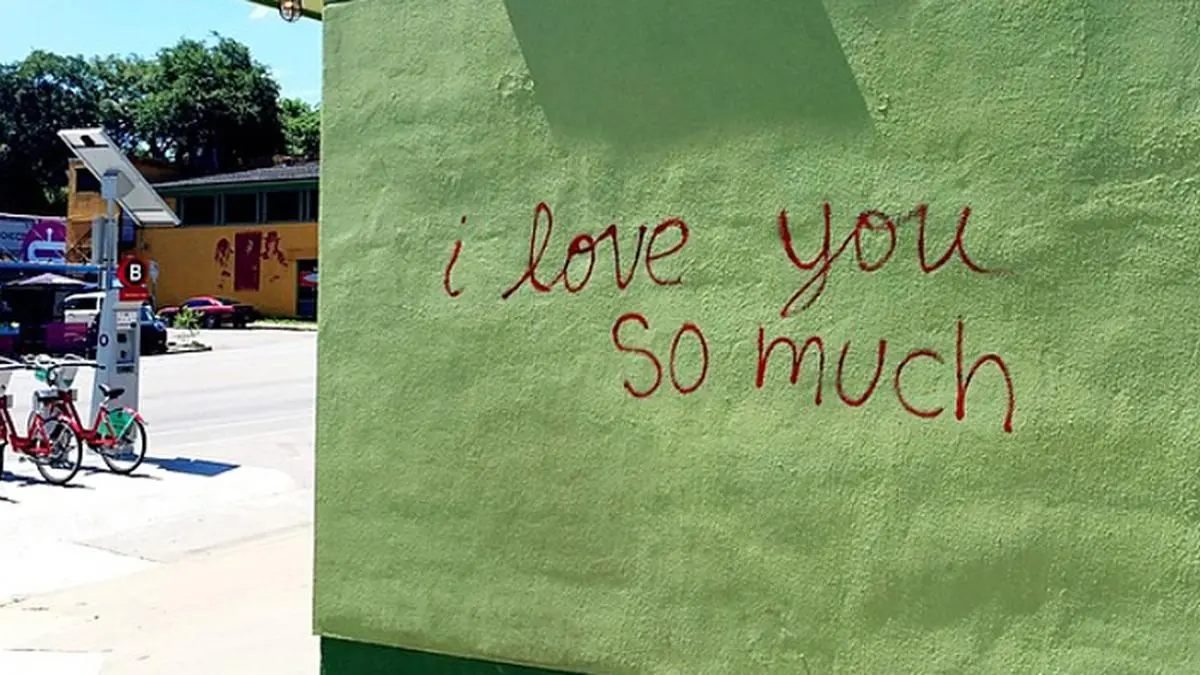 i love you
so much
B